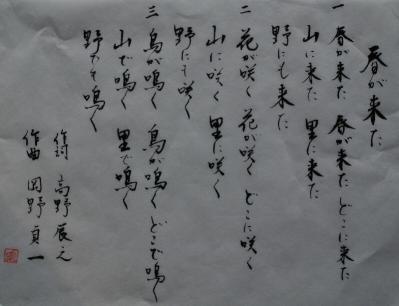 春が来た
一 春が来た 春が来た どこに来た
山に来た 里に来た
野にも来た
二 花が咲く 花が咲く どこに咲く
山に咲く 里に咲く
野にも咲く
三 鳥が鳴く 鳥が鳴く どこで鳴く
山で鳴く 里で鳴く
野でも鳴く
作詞 高野辰之
作曲 岡野貞一